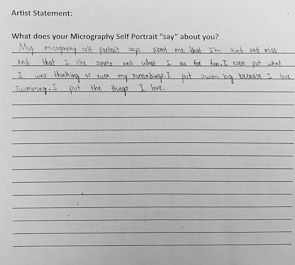 Artist Statement:
What does your Micrography Self Portrait "say" about you?
My micrography self portrait says about me that I'm kind and nice
and that I like sports and what I do for fun. I even put what
I was thinking or even my surroundings. I put swim big because I love
swimming. I put the things I love.